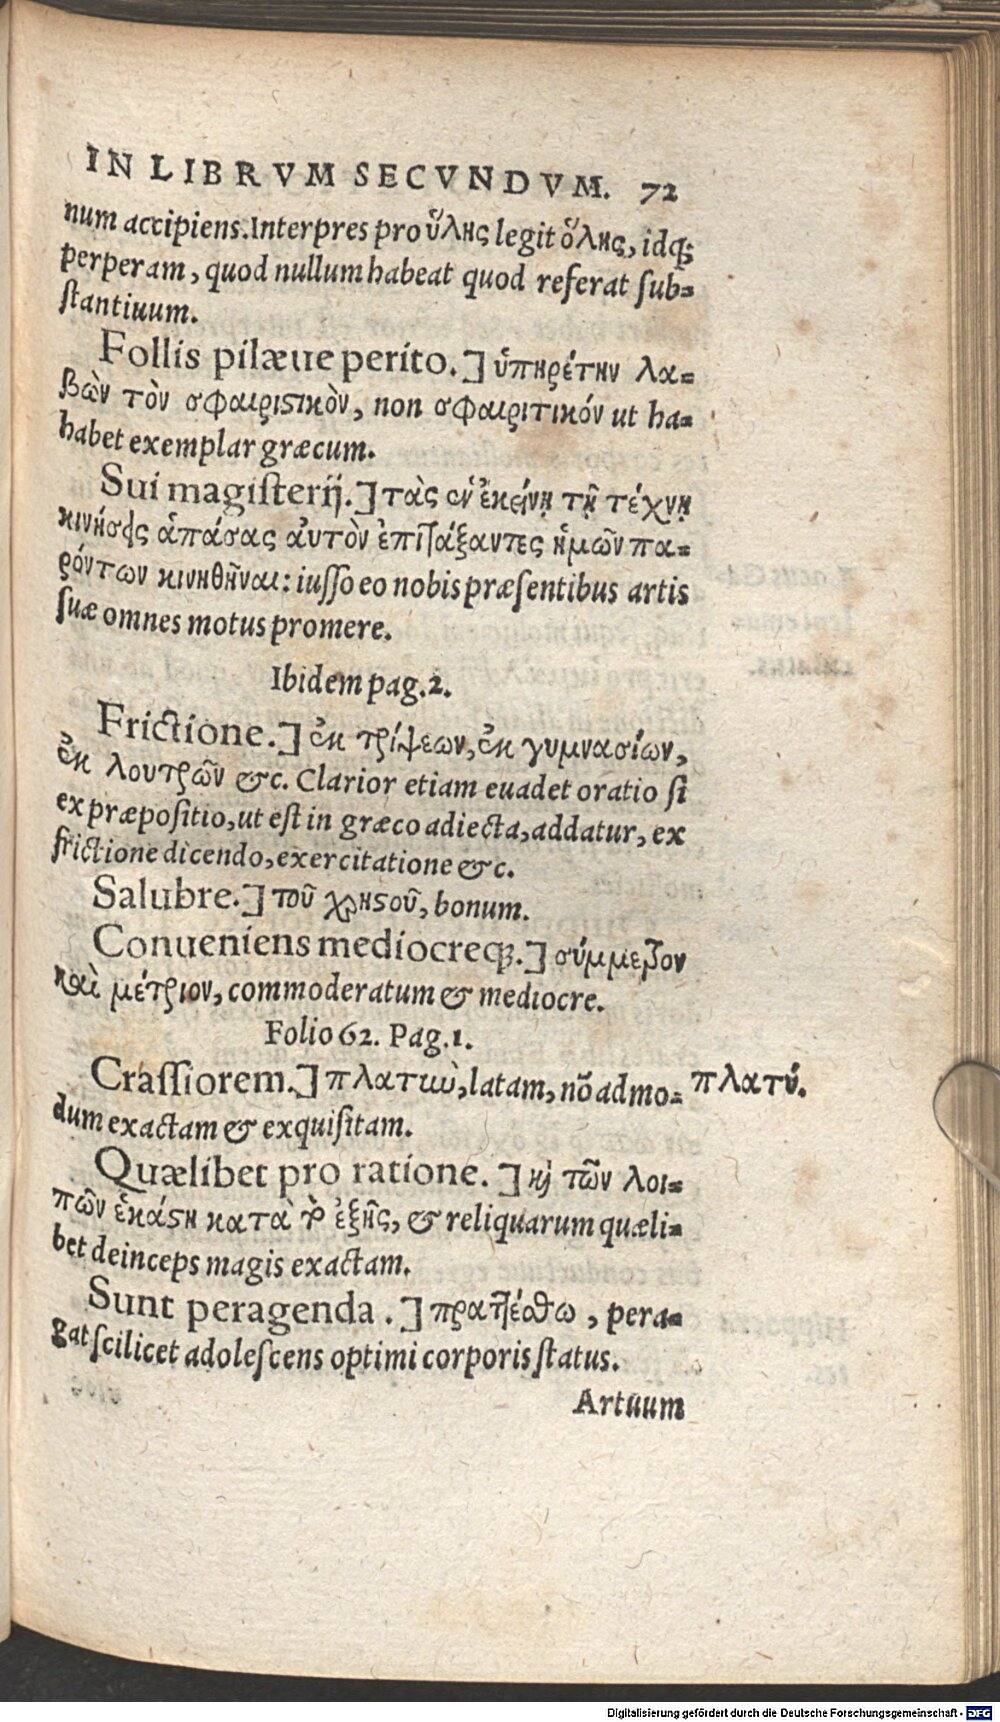 IN LIBRVM SECVNDVM. 72
num accipiens. Interpres pro ὕλης legit ὅλης, idq́;
perperam, quod nullum habeat quod referat sub-
stantiuum.
Follis pilæue perito.] ὑπηρέτην λα-
βὼν τὸν σφαιριϛικὸν, non σφαιριτικόν ut ha-
habet exemplar græcum.
Sui magisterij.] τὰς ἐν ἐκείνῃ τῇ τέχνῃ
κινήσεις ἁπάσας αὐτὸν ἐπιτάξαντες ἡμῶν πα-
ρόντων κινηθῆναι: iusso eo nobis præsentibus artis
suæ omnes motus promere.
Ibidem pag. 2.
Frictione.] ἐκ τρίψεων, ἐκ γυμνασίων,
ἐκ λουτρῶν &c. Clarior etiam euadet oratio si
ex præpositio, ut est in græco adiecta, addatur, ex
frictione dicendo, exercitatione &c.
Salubre.] τοῦ χρηϛοῦ, bonum.
Conueniens mediocreq;.] σύμμετρον
καὶ μέτριον, commoderatum & mediocre.
Folio 62. Pag. 1.
Crassiorem.] πλατὺ, latam, nō admo- πλατύ.
dum exactam & exquisitam.
Quælibet pro ratione.] κỳ τῶν λοι-
πῶν ἑκάϛη κατὰ τὸ ἑξῆς, & reliquarum quæli-
bet deinceps magis exactam.
Sunt peragenda.] πραττέσθω, pera-
gat scilicet adolescens optimi corporis status.
Artuum
Digitalisierung gefördert durch die Deutsche Forschungsgemeinschaft - DFG